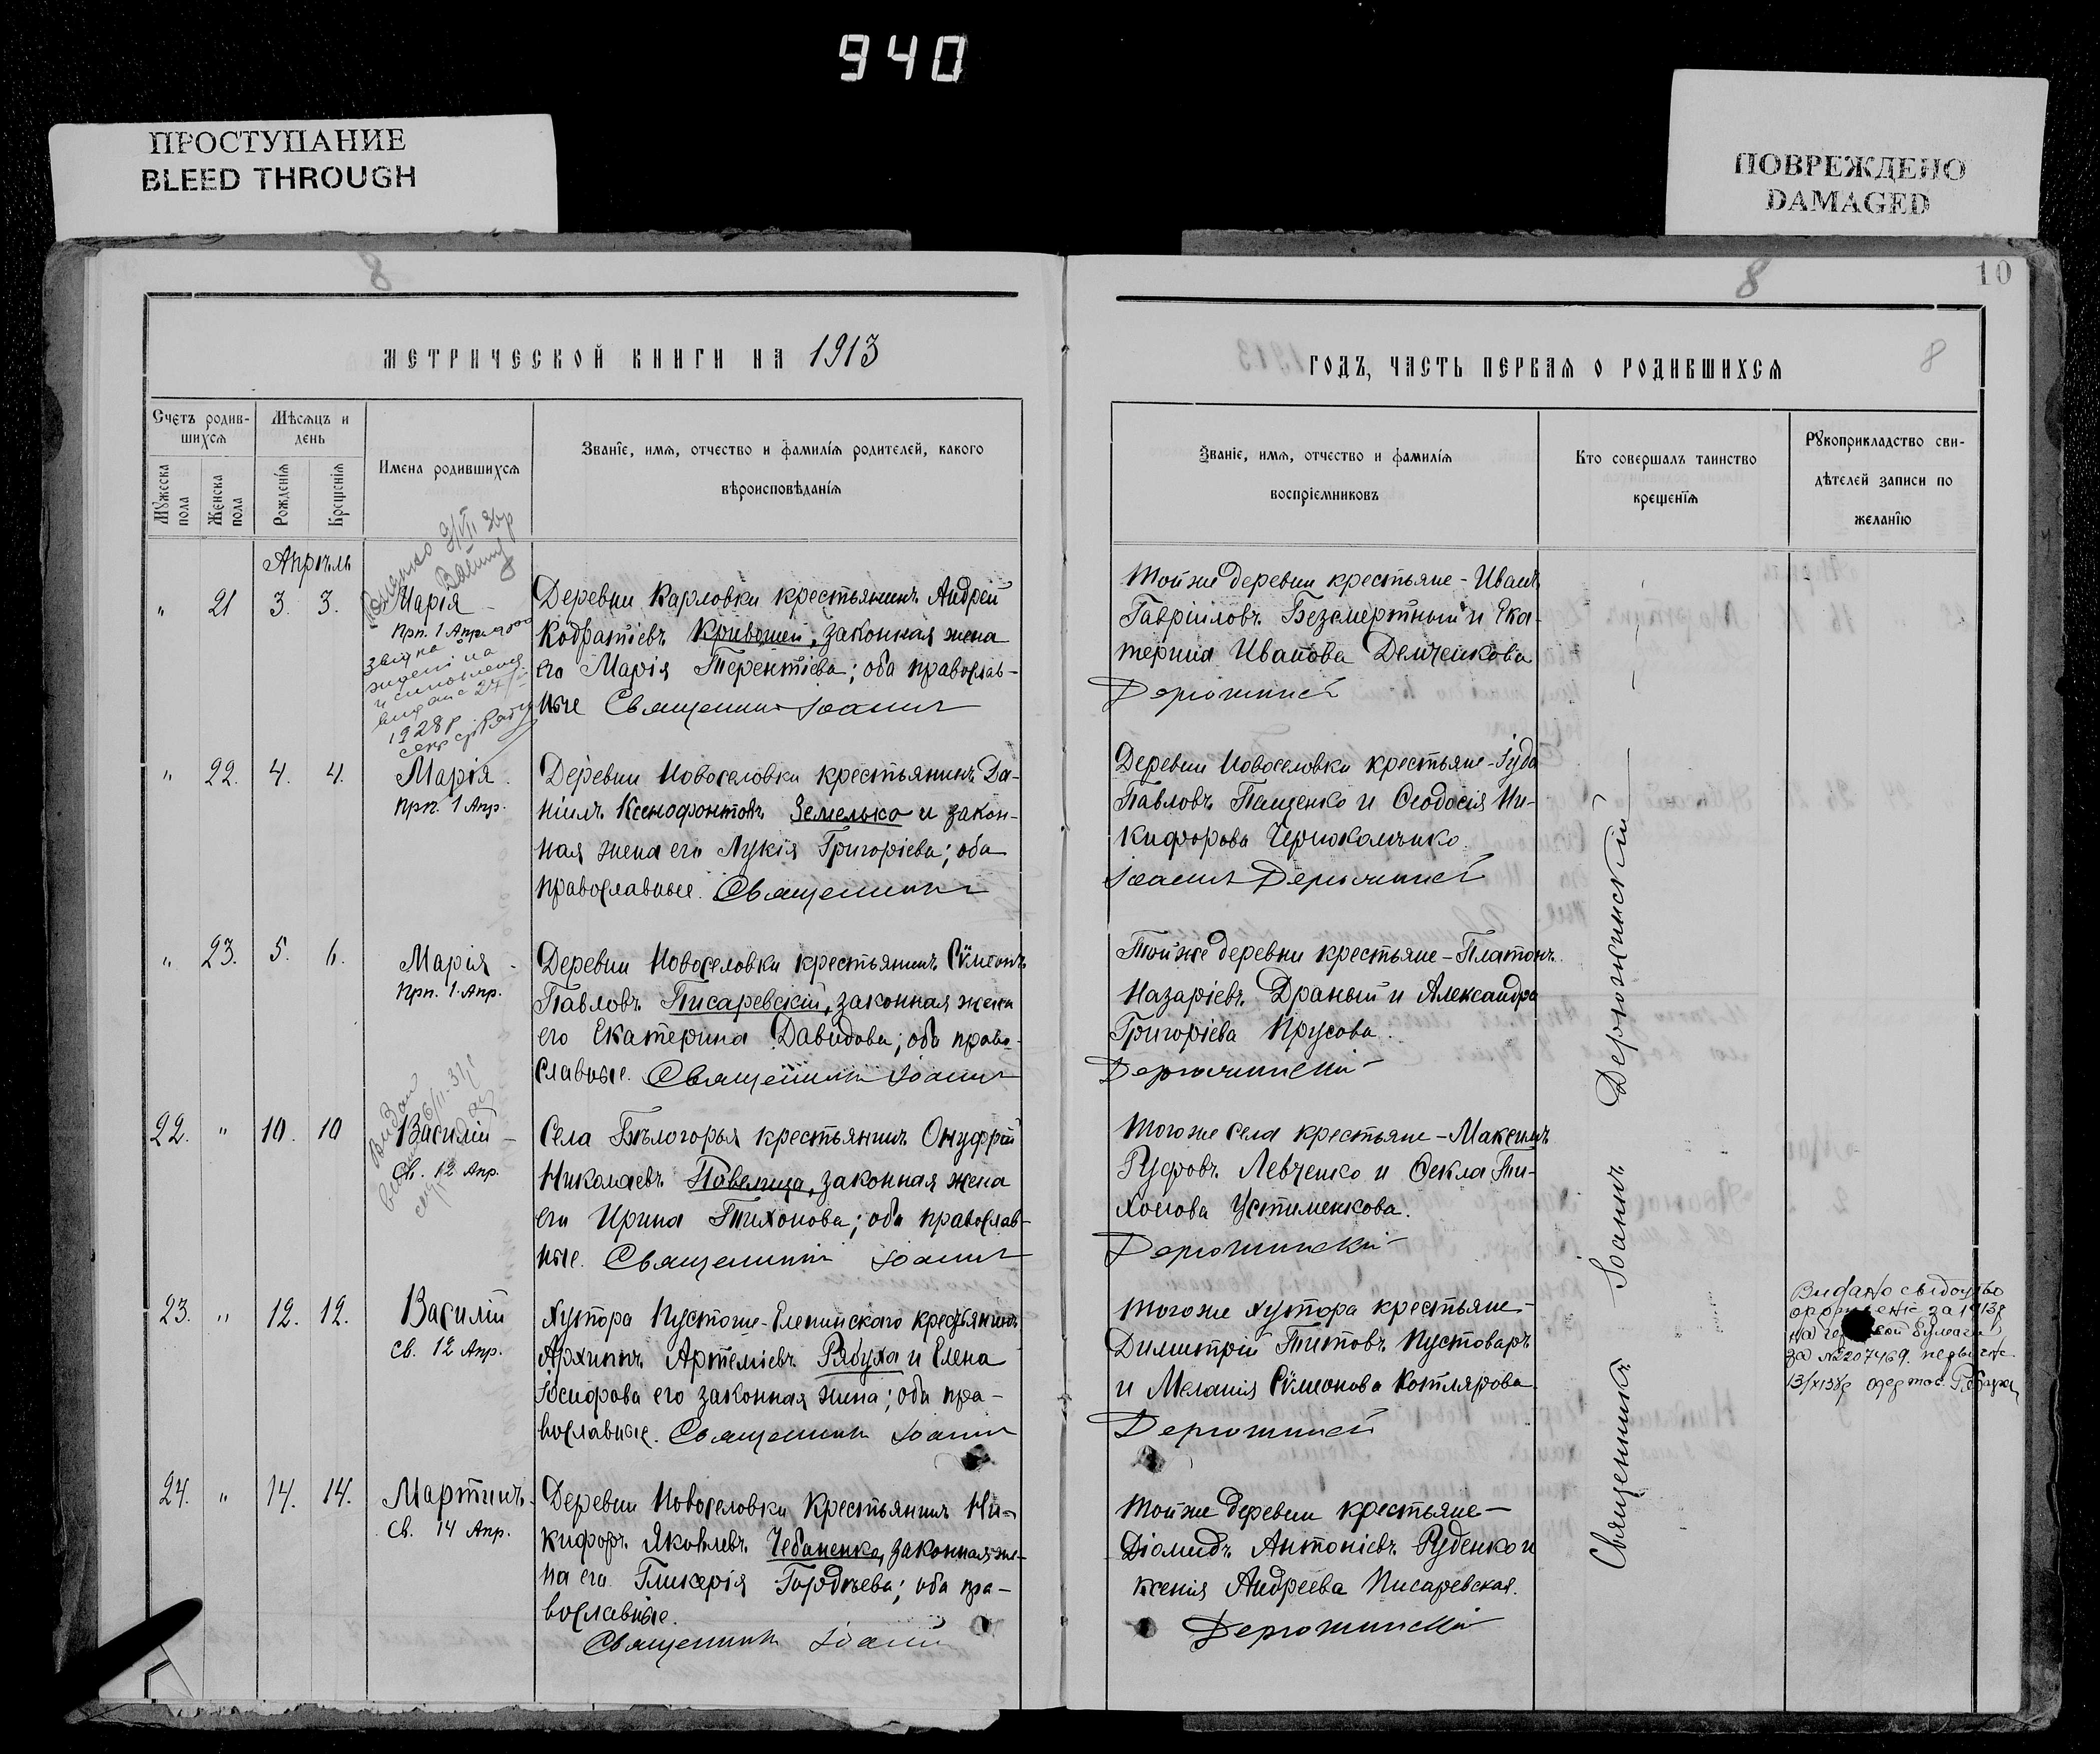 940
ПРОСТУПАНИЕ
BLEED THROUGH
ПОВРЕЖДЕНО
DAMAGED
8
МЕТРИЧЕСКОЙ КНИГИ НА 1913
Счетъ родив-
шихся
Мѣсяцъ и
день
Мужеска пола
Женска пола
Рожденія
Крещенія
Имена родившихся
Званіе, имя, отчество и фамилія родителей, какого
вѣроисповѣданія
Апрѣль
" 21 3. 3. Марія
Прп. 1 Апрѣля
1928р
Деревни Карловки крестьянинъ Андрей
Кодратіевъ Кривошей, законная жена
его Марія Терентіева; оба православ-
ные Священникъ Іоаннъ
" 22. 4. 4. Марія.
Прп. 1 Апр.
Деревни Новоселовки крестьянинъ Да-
ніилъ КсенофонтовъЗемелько и закон-
ная жена его Лукія Григоріева; оба
православные. Священникъ
" 23. 5. 6. Марія
Прп. 1. Апр.
Деревни Новоселовки крестьянинъ Сѵмеонъ
Павловъ Писаревскій, законная жена
его Екатерина Давидова; оба право-
славные. Священникъ Іоаннъ
22. " 10. 10 Василій
Св. 12 Апр.
Села Бѣлогорья крестьянинъ Онуфрій
Николаевъ Павелица, законная жена
его Ирина Тихонова; оба православ-
ные. Священникъ Іоаннъ
23. " 12. 12. Василій
Св. 12 Апр.
Хутора Пустоше-Еленинскаго крестьянинъ
Архиппъ Артеміевъ Рябуха и Елена
Іосифова его законная жена; оба пра-
вославные. Священникъ Іоаннъ
24. " 14. 14. Мартинъ.
Св. 14 Апр.
Деревни Новоселовки Крестьянинъ Ни-
кифоръ Яковлевъ Чебаненко, законная же-
на его Гликерія Гордѣева; оба пра-
вославные.
Священникъ Іоаннъ
8
10
8
ГОДЪ, ЧАСТЬ ПЕРВАЯ О РОДИВШИХСЯ
Званіе, имя, отчество и фамилія
воспріемниковъ
Кто совершалъ таинство
крещенія
Рукоприкладство сви-
дѣтелей записи по
желанію
Той же деревни крестьяне - Иванъ
Гавріиловъ Безсмертный и Ека-
терина Иванова Демченкова
Дерюжинскій
Деревни Новоселовки крестьяне - Іуда
Павловъ Пащенко и Ѳеодосія Ни-
кифорова
Іоаннъ Дерюжинскій
Той же деревни крестьяне - Платонъ
Назаріевъ Драный и Александра
Григоріева Прусова.
Дерюжинскій
Того же села крестьяне - Максимъ
Руфовъ Левченко и Ѳекла Ти-
хонова Устименкова.
Дерюжинскій
Того же хутора крестьяне -
Димитрій Титовъ Пустоваръ
и Меланія Сѵмеонова Котлярова
Дерюжинскій
Той же деревни крестьяне -
Діомидъ Антоніевъ Руденко и
Ксенія Андреева Писаревская.
Дерюжинскій
Священникъ Іоаннъ Дерюжинскій
Видано свідоцтво
за 1913р
за №207469.